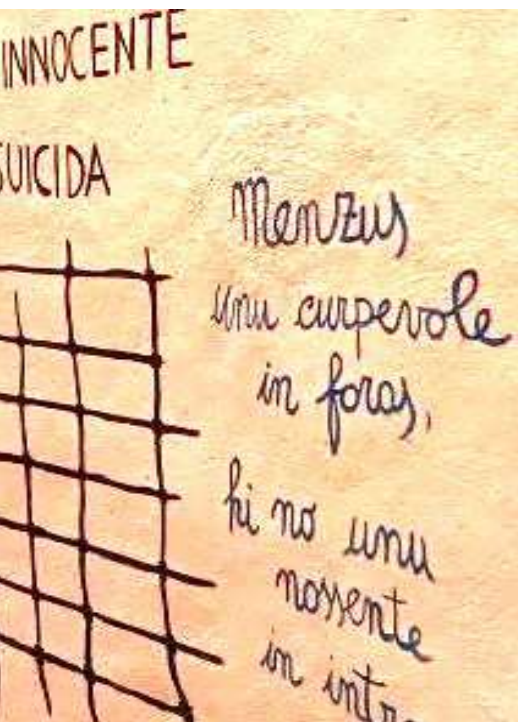 INNOCENTE
SUICIDA
Menzus
unu curpevole
in foras,
hi no unu
nossente
in